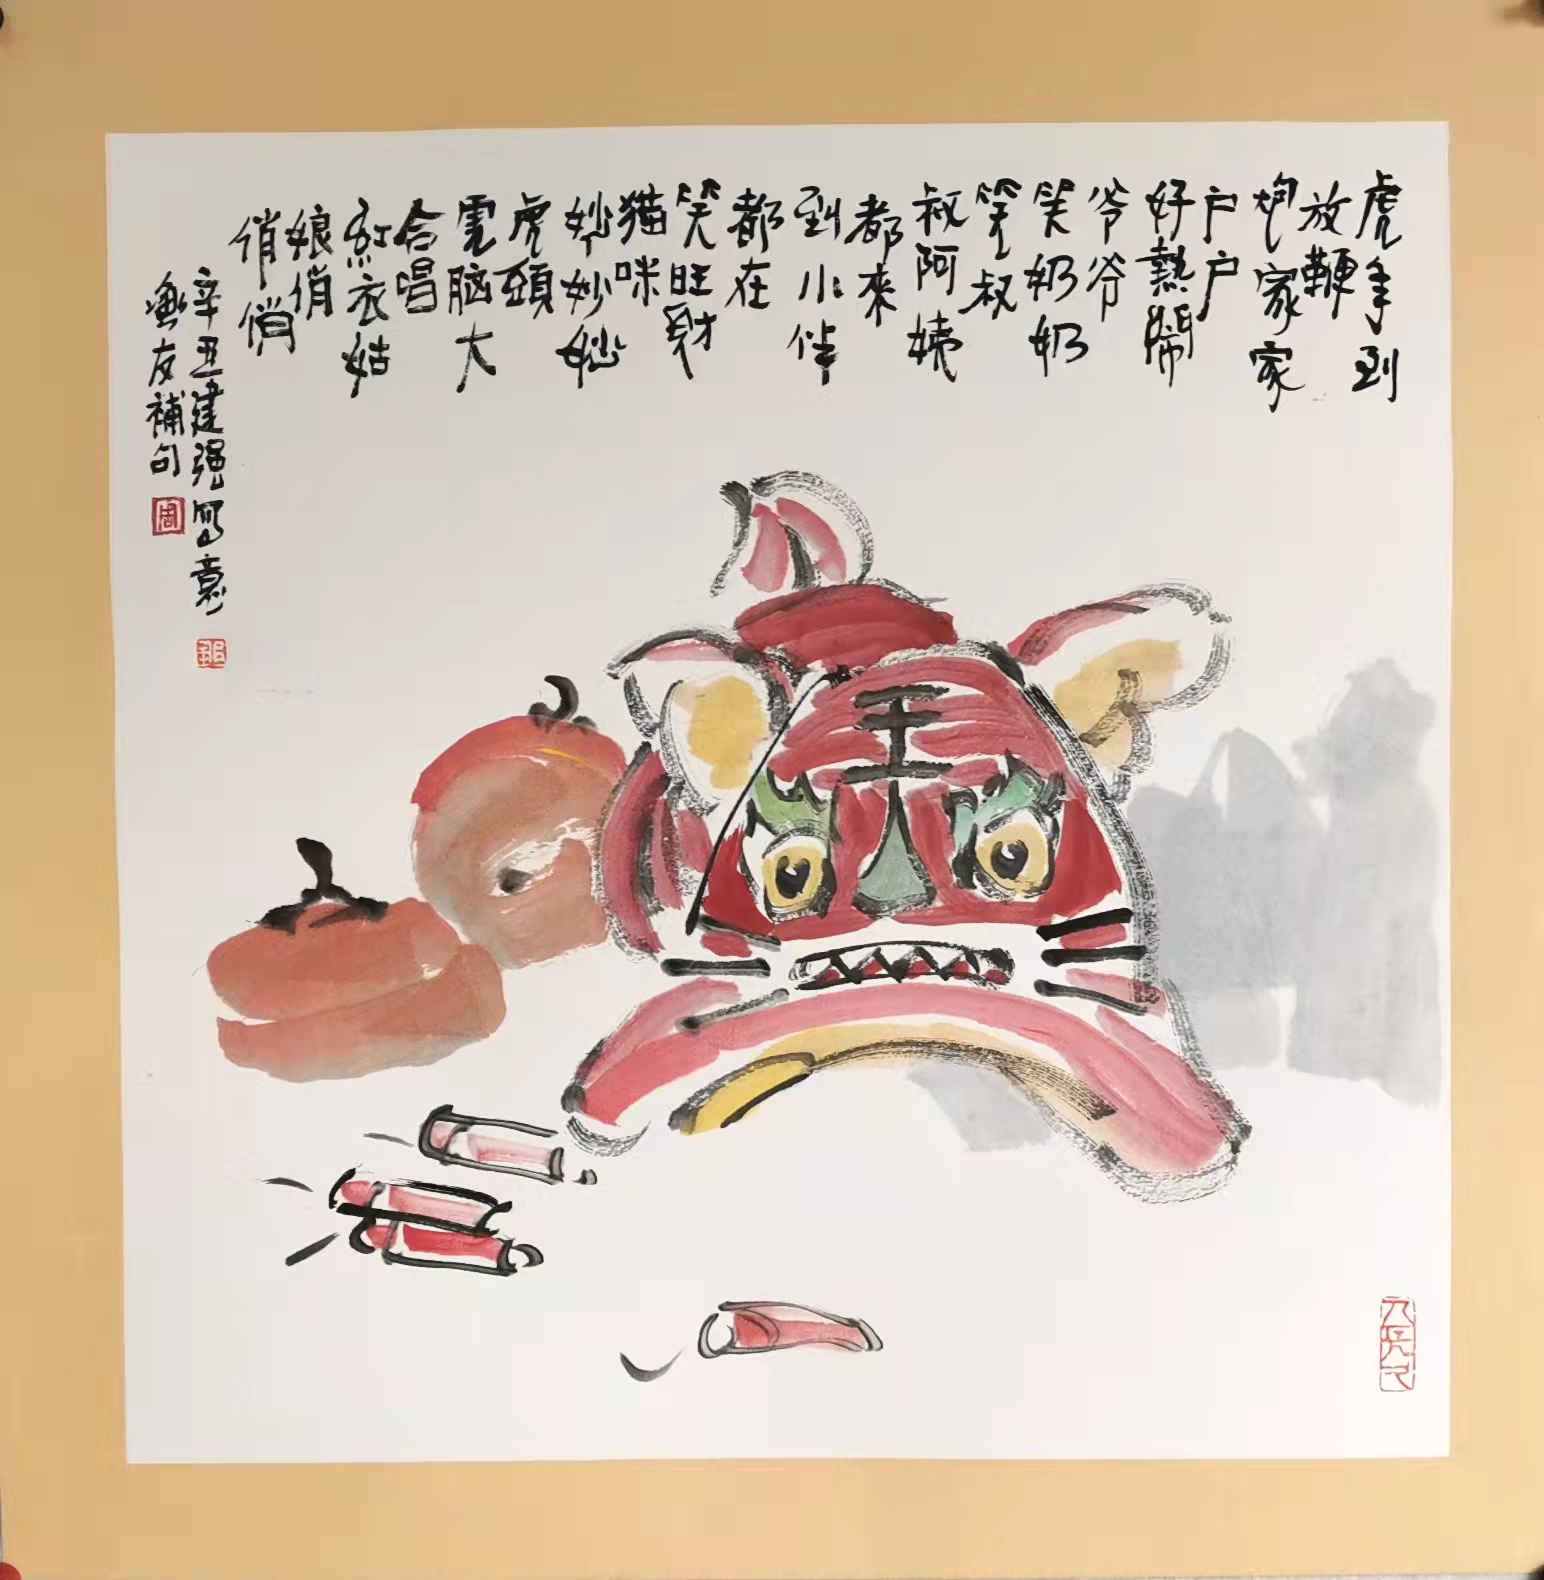 虎年到
放鞭
炮家家
户户
好熱鬧
爷爷
笑奶奶
笑叔
叔阿姨
都來
到小伴
都在
笑旺財
猫咪
妙妙妙
虎頭
電脑大
合唱
紅衣姑
娘俏
俏俏
辛丑建强寫意
友補句
周
王